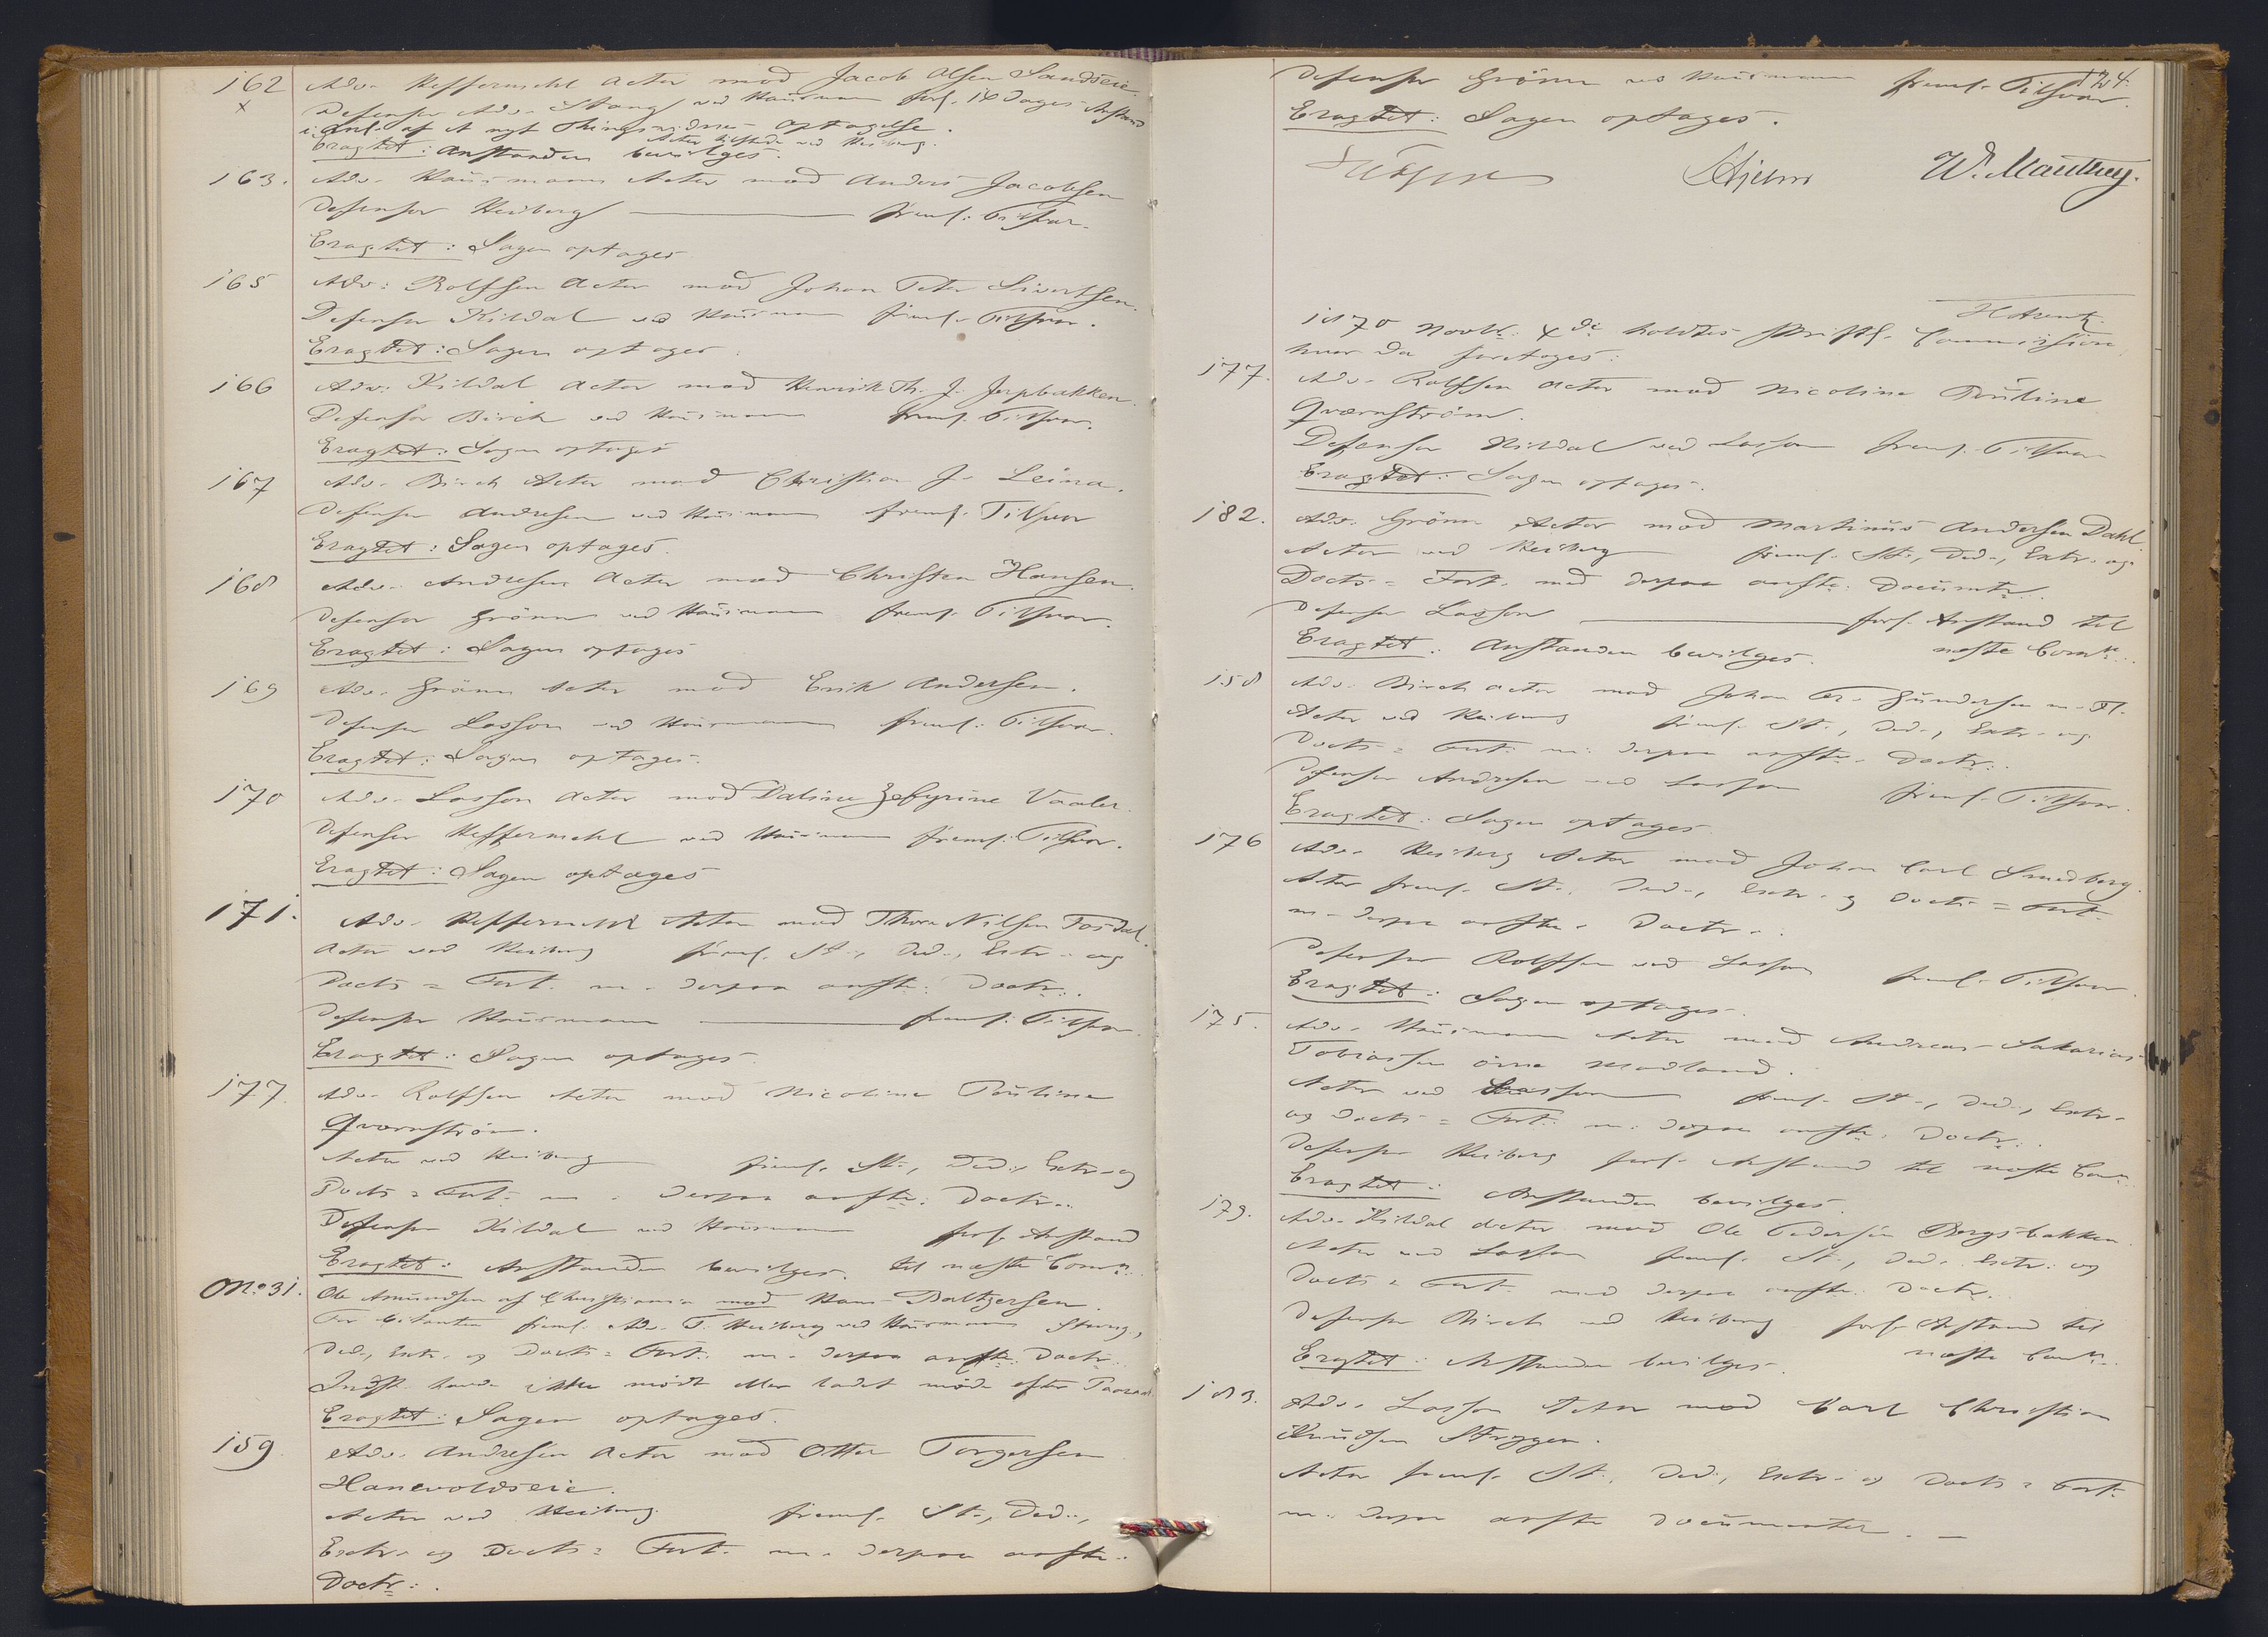 162 Adv. Heffermehl Actor mod Jacob Olsen Sandseie.
x Defensor Adv. Stang ved Hausmann forl. 14 Dages Anstand
i Anl. af et nyt Thingsvidnes Optagelse.
Actor tilstede ved Heiberg.
Eragtet: Anstanden bevilges.
163. Adv. Hausmann Actor mod Anders Jacobsen
Defensor Heiberg — freml. Tilsvar.
Eragtet: Sagen optages
165 Adv: Rolfsen Actor mod Johan Peter Sivertsen.
Defensor Kildal ved Hausmann freml. Tilsvar.
Eragtet: Sagen optages.
166 Adv: Kildal Actor mod Henrik Th. J. Jerpbakken.
Defensor Birch ved Hausmann freml. Tilsvar.
Eragtet: Sagen optages
167 Adv. Birch Actor mod Christian J. Leina.
Defensor Andresen ved Hausmann freml. Tilsvar
Eragtet: Sagen optages.
168 Adv. Andresen Actor mod Christen Hansen.
Defensor Grönn ved Hausmann freml. Tilsvar.
Eragtet: Sagen optages
169 Adv. Grönn Actor mod Erik Andersen.
Defensor Lasson ved Hausmann freml: Tilsvar.
Eragtet: Sagen optages.
170 Adv. Lasson Actor mod Daline Zefyrine Vaaler.
Defensor Heffermehl ved Hausmann freml: Tilsvar.
Eragtet: Sagen optages
171. Adv. Heffermehl Actor mod Thore Nilsen Fosdal.
Actor ved Heiberg freml. St., Ded., Extr. og
Docts = Fort. m. derpaa anfte: Doctr:.
Defensor Hausmann — freml: Tilsvar.
Eragtet: Sagen optages.
177. Adv. Rolfsen Actor mod Nicoline Pauline
Qvarnström.
Actor ved Heiberg freml. St., Ded., Extr. og
Docts = Fort. m. derpaa anfte: Doctr..
Defensor Kildal ved Hausmann forl. Anstand
Eragtet: Anstanden bevilges. til næste Comn:.
No. 31. Ole Amundsen af Christiania mod Hans Baltzersen.
For Citanten freml. Adv. T. Heiberg ved Hausmann Stevng.,
Ded., Extr. og Docts = Fort: m. derpaa anfte: Doctr:.
Indst. havde ikke mödt eller ladet möde efter Paaraab.
Eragtet: Sagen optages.
159. Adv. Andresen Actor mod Otter Torgersen
Hanevoldseie.
Actor ved Heiberg freml. St., Ded.,
Extr. og Docts = Fort. m. derpaa anfte:
Doctr:.
124.
Defensor Grönn ved Hausmann freml. Tilsvar.
Eragtet: Sagen optages.
Hjelm W. Manthey.
1870 Novbr: 4de holdtes skriftl. Commission,
hvor da foretoges:
177. Adv. Rolfsen Actor mod Nicoline Pauline
Qvarnström.
Defensor Kildal ved Lasson freml. Tilsvar
Eragtet: Sagen optages.
182. Adv. Grönn Actor mod Martinus Andersen Dahl.
Actor ved Heiberg freml. St., Ded., Extr. og
Docts = Fort. med derpaa anfte. Documtr..
Defensor Lasson — forl. Anstand til
Eragtet: Anstanden bevilges. næste Comn:..
158 Adv. Birch Actor mod Johan Gundersen m. Fl.
Actor ved Heiberg freml. St., Ded., Extr. og
Docts = Fort: m: derpaa anfte. Doctr:.
Defensor Andresen ved Lasson freml. Tilsvar.
Eragtet: Sagen optages.
176 Adv. Heiberg Actor mod Johan Carl Smedberg.
Actor freml. St., Ded., Extr. og Docts = Fort.
m. derpaa anfte. Doctr..
Defensor Rolfsen ved Lasson freml. Tilsvar.
Eragtet: Sagen optages.
175. Adv. Hausmann Actor mod Andreas Sakarias
Tobiassen Madland.
Actor ved Lasson freml. St., Ded., Extr.
og Docts = Fort. m: derpaa anfte: Doctr:.
Defensor Heiberg forl. Anstand til næste Comn:.
Eragtet: Anstanden bevilges.
179. Adv. Kildal Actor mod Ole Pedersen Bergsbakken.
Actor ved Lasson freml. St., Ded., Extr: og
Docts = Fort. med derpaa anfte: Doctr..
Defensor Birch ved Heiberg forl. Anstand til
Eragtet: Anstanden bevilges. næste Comn:.
183. Adv. Lasson Actor mod Carl Christian
Knudsen Striggen.
Actor freml. St., Ded:, Extr. og Docts = Fort.
m: derpaa anfte Documenter. —